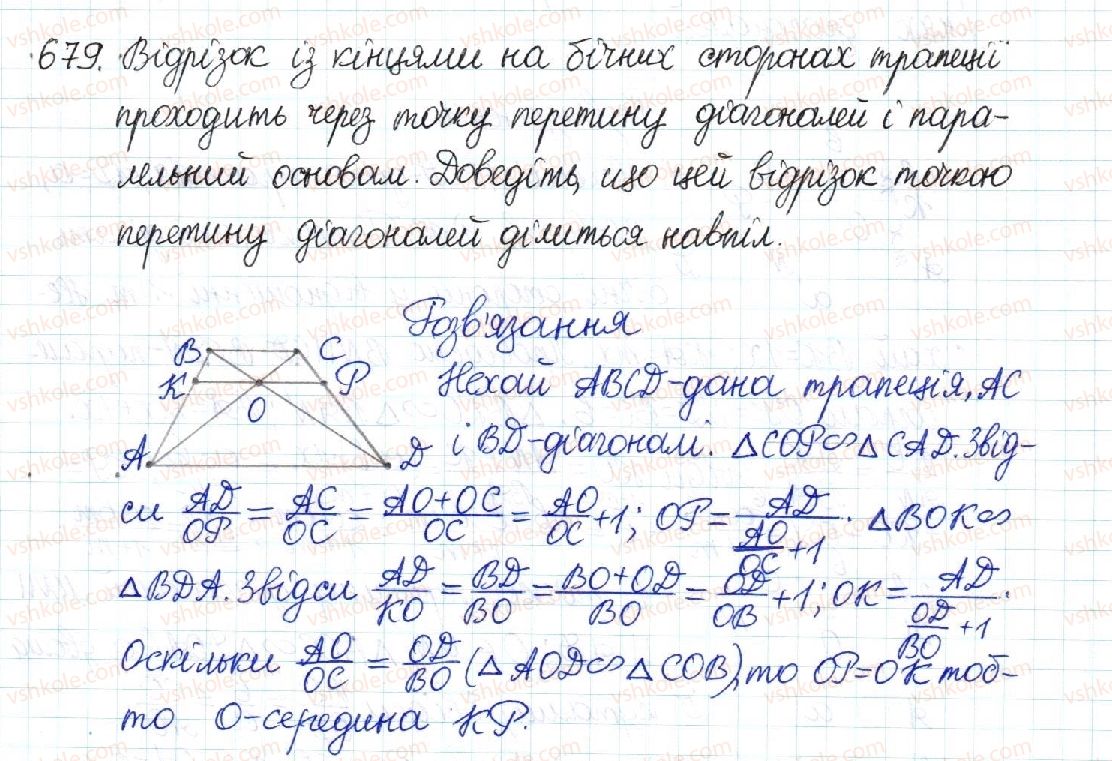 679. Відрізок із кінцями на бічних сторонах трапеції
проходить через точку перетину діагоналей і пара-
лельний основам. Доведіть, що цей відрізок точкою
перетину діагоналей ділиться навпіл.
Розв'язання
B C
K P
O
A D
Нехай ABCD-дана трапеція, AC
і BD-діагоналі. △COP∾△CAD. Звід-
си AD/OP = AC/OC = AO+OC/OC = AO/OC +1; OP = AD/(AO/OC +1). △BOK∾
△BDA. Звідси AD/KO = BD/BO = BO+OD/BO = OD/OB +1; OK = AD/(OD/BO +1).
Оскільки AO/OC = OD/BO (△AOD∾△COB), то OP=OK тоб-
то O-середина KP.
vshkole.com